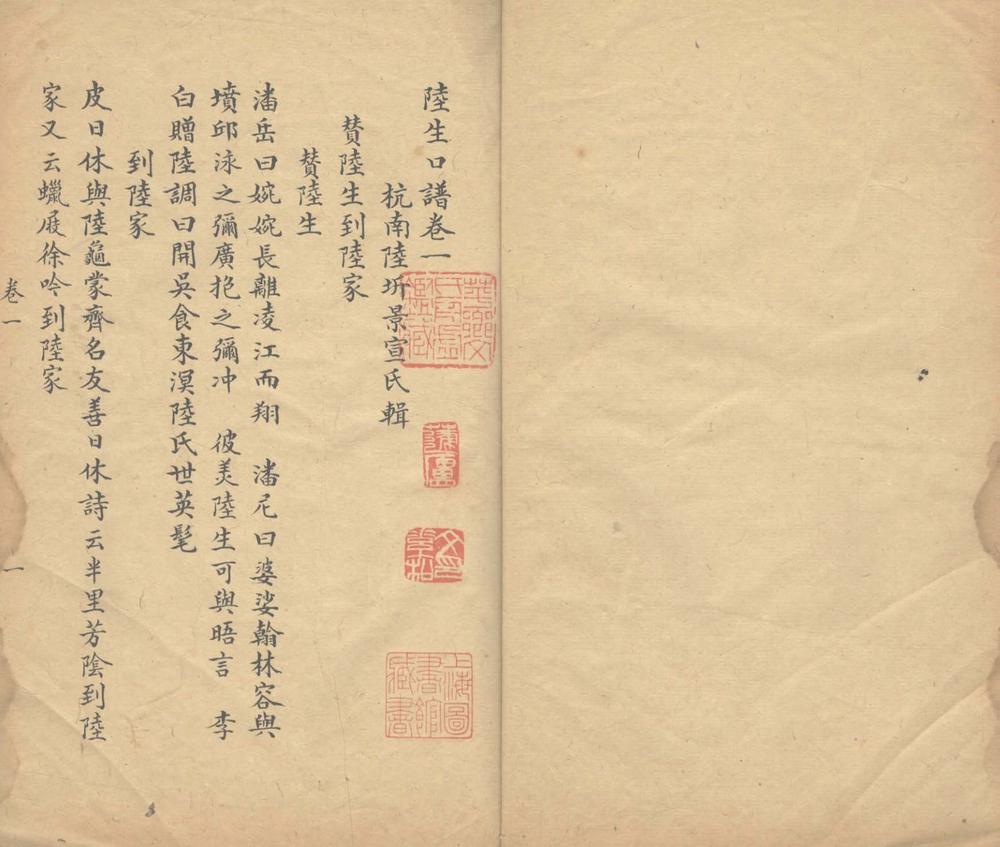 陸生口譜卷一
杭南陸圻景宣氏輯
贊陸生到陸家
贊陸生
潘岳曰婉婉長離凌江而翔 潘尼曰婆娑翰林容與
墳邱泳之彌廣挹之彌冲 彼美陸生可與晤言 李
白贈陸調曰開吳食東溟陸氏世英髦
到陸家
皮日休與陸龜蒙齊名友善日休詩云半里芳陰到陸
家又云蠟屐徐吟到陸家
卷一
一
上海圖書館藏書